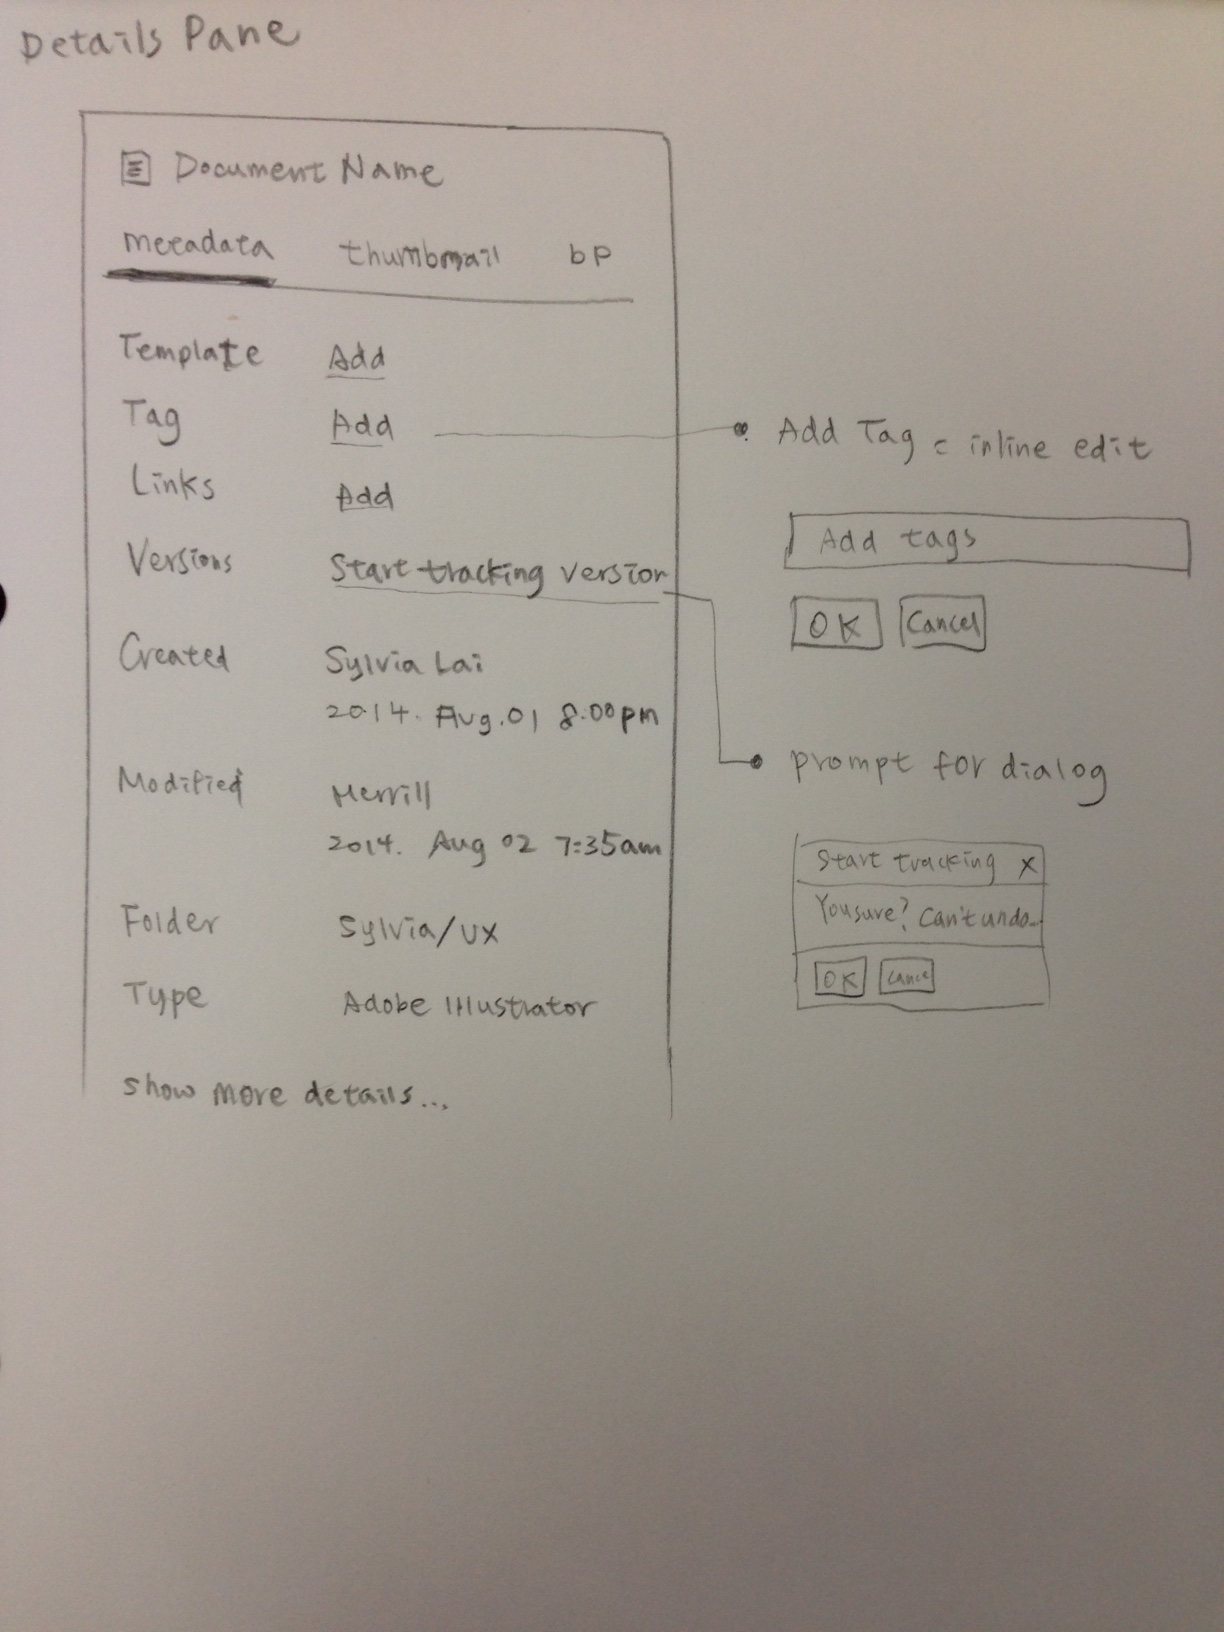 Details Pane
Document Name
metadata thumbmail bp
Template Add
Tag Add
Links Add
Versions Start tracking version
Created Sylvia Lai
2014. Aug. 01 8:00pm
Modified Merrill
2014. Aug 02 7:35am
Folder Sylvia/UX
Type Adobe Illustrator
show more details...
Add Tag = inline edit
Add tags
OK Cancel
prompt for dialog
Start tracking X
You sure? Can't undo..
OK Cancel